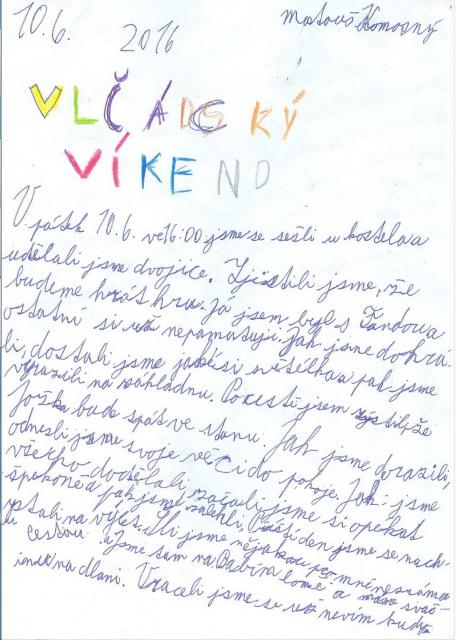 10.6. 2016 Matouš Komosný
VLČÁCKÝ
VÍKEND
V pátek 10.6. ve 16:00 jsme se sešli u kostela a
udělali jsme dvojice. Zjistili jsme, že
budeme hrát hru. Já jsem byl s Fandou a
ostatní si už nepamatuji. Jak jsme dohrá-
li, dostali jsme jakési světélka a pak jsme
vyrazili na základnu. Po cestě jsem zjistil, že
Jožka bude spát ve stanu. Jak jsme dorazili,
odnesli jsme svoje věci do pokoje. Jak jsme
všecho dodělali začali jsme si opékat
špekáně a pak jsme zalehli. Další den jsme se nach-
stali na výlet. Šli jsme po mně neznámé
cestou. a jsme tam na Babím lomě a svač-
inu na dlani. Vraceli jsme se už nevím kudy